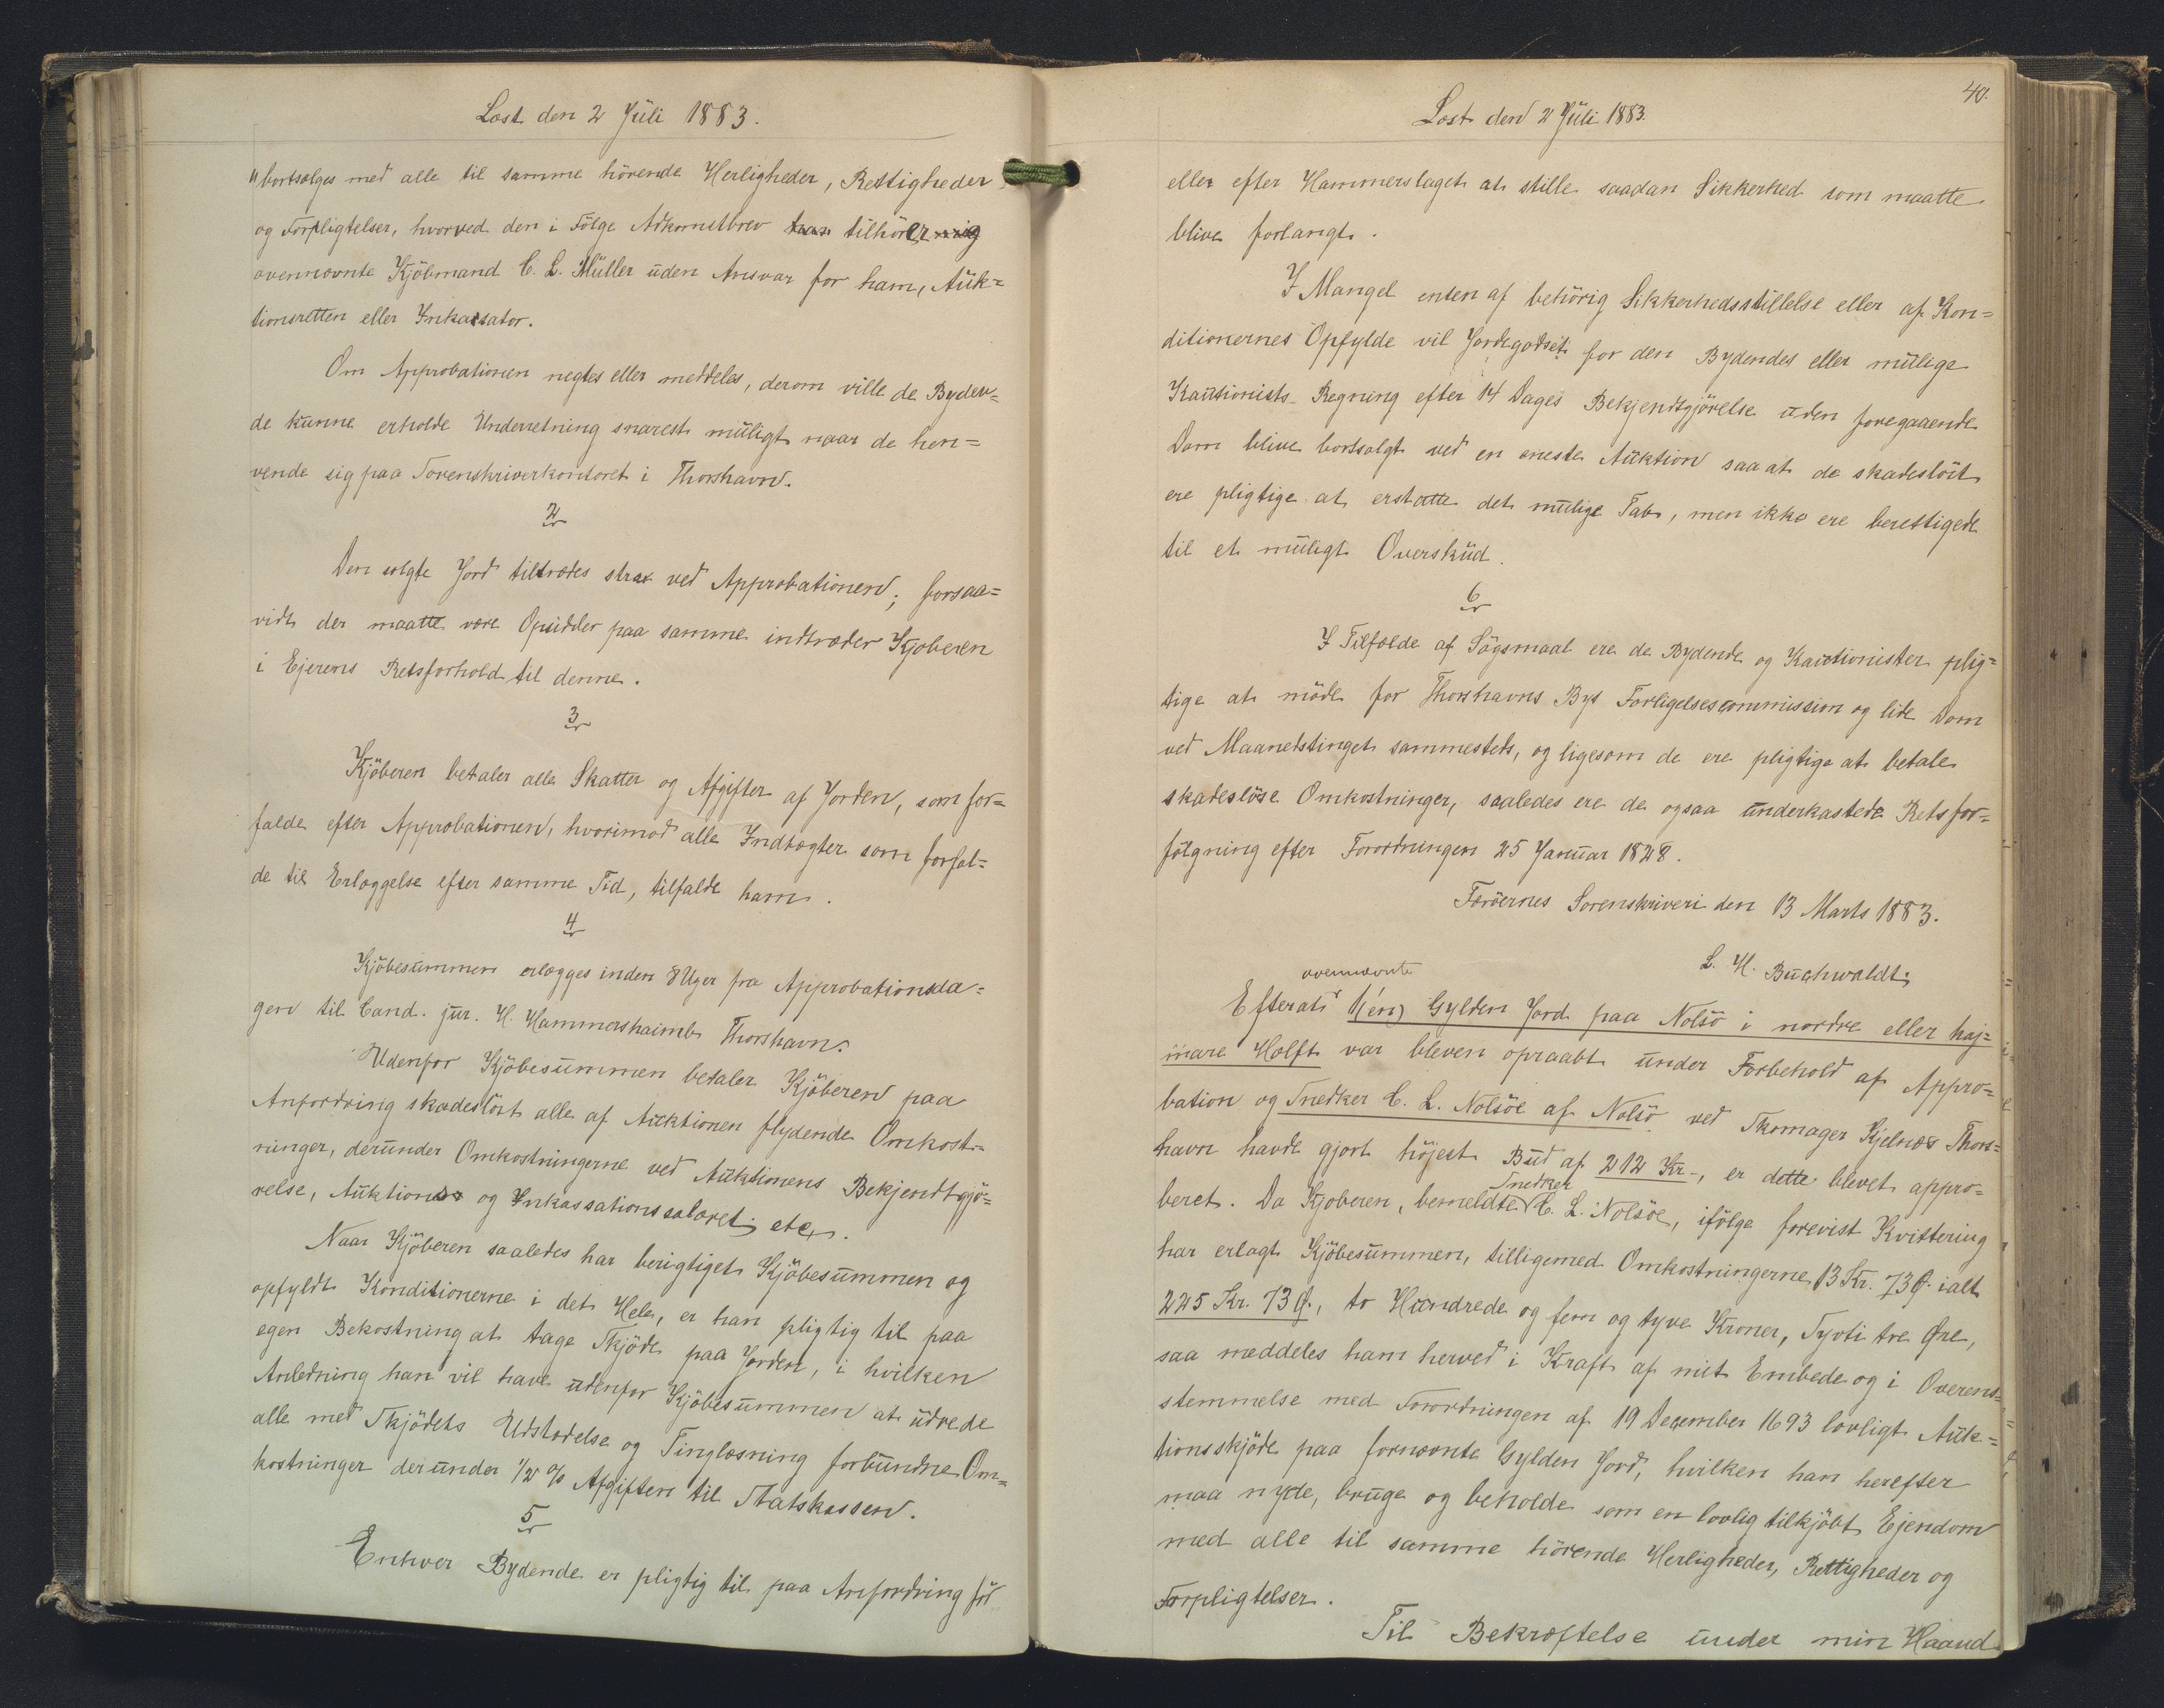 Læst den 2 Juli 1883.
"bortsælges med alle til samme hörende Herligheder, Rettigheder
og Forpligtelser, hvorved den i Fölge Adkomstbrev tilhörer
ovennævnte Kjöbmand C. L. Müller uden Ansvar for ham, Auk=
tionsretten eller Inkassator.
Om Approbationen negtes eller meddeles, derom ville de Byden=
de kunne erholde Underretning snarest muligt naar de hen=
vende sig paa Sorenskriverkontoret i Thorshavn.
2
Den solgte Jord tiltrædes strax ved Approbationen; forsaa=
vidt der maatte være Opsidder paa samme indtræder Kjøberen
i Ejerens Retsforhold til denne.
3
Kjöberen betaler alle Skatter og Afgifter af Jorden, som for=
falde efter Approbationen, hvorimod alle Indtægter som forfal=
de til Erlæggelse efter samme Tid, tilfalde ham.
4
Kjöbesummen erlægges inden 8 Uger fra Approbationsda=
gen til Cand. jur. H. Hammershaimb Thorshavn.
Udenfor Kjöbesummen betaler Kjöberen paa
Anfordring skadeslöst alle af Auktionen flydende Omkost=
ninger, derunder Omkostningerne ved Auktionens Bekjendtgjö=
relse, Auktions og Inkassationssalæret etc.
Naar Kjöberen saaledes har berigtiget Kjöbesummen og
opfyldt Konditionerne i det Hele, er han pligtig til paa
egen Bekostning at tage Skjöde paa Jorden, i hvilken
Anledning han vil have udenfor Kjöbesummen at udrede
alle med Skjödets Udstædelse og Tinglæsning forbundne Om=
kostninger derunder 1/2 % Afgiften til Statskassen.
5
Enhver Bydende er pligtig til paa Anfordring för
40.
Læst den 2 Juli 1883.
eller efter Hammerslaget at stille saadan Sikkerhed som maatte
blive forlangt.
I Mangel enten af behörig Sikkerhedsstillelse eller af Kon=
ditionernes Opfylde vil Jordegodset for den Bydendes eller mulige
Kautionists Regning efter 14 Dages Bekjendtgjörelse uden foregaaende
Dom blive bortsolgt ved en eneste Auktion saa at de skadeslöst
ere pligtige at erstatte det mulige Tab, men ikke ere berettigede
til et muligt Overskud.
6
I Tilfælde af Sögsmaal ere de Bydende og Kautionister plig=
tige at möde for Thorshavns Bys Forligelsescommission og lide Dom
ved Maanedstinget sammesteds, og ligesom de ere pligtige at betale
skadeslöse Omkostninger, saaledes ere de ogsaa underkastede Retsfor=
fölgning efter Forordningen 25 Januar 1828.
Færöernes Sorenskriveri den 13 Marts 1883.
L. H. Buchwaldt.
ovennævnte
Efterat 1 (en) Gylden Jord paa Nolsö i nordre eller haj=
mare Helft var bleven opraabt under Forbehold af Appro=
bation og Snedker C. L. Nolsöe af Nolsö ved Skomager Kjelnæs Thors=
havn havde gjort höjest Bud af 212 Kr., er dette blevet appro=
Snedker
beret. Da Kjøberen, bemeldte C. L. Nolsöe, ifölge forevist Kvittering
har erlagt Kjöbesummen, tilligemed Omkostningerne 13 Kr. 73 Ø. ialt
225 Kr. 73 Ø., to Hundrede og fem og tyve Kroner, Syvti tre Øre,
saa meddeles ham herved i Kraft af mit Embede og i Overens=
stemmelse med Forordningen af 19 December 1693 lovligt Auk=
tionsskjöde paa fornævnte Gylden Jord, hvilken han herefter
maa nyde, bruge og beholde som en lovlig tilkjöbt Ejendom
med alle til samme hörende Herligheder, Rettigheder og
Forpligtelser.
Til Bekræftelse under min Haand